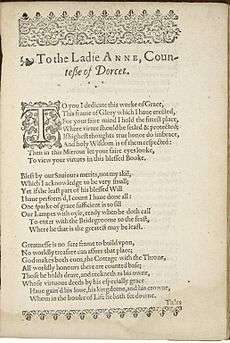 To the Ladie ANNE, Coun-
tesse of Dorcet.
TO you I dedicate this worke of Grace,
This frame of Glory which I have erected,
For your faire mind I hold the fittest place,
Where virtue should be setled & protected;
If highest thoughts true honor do imbrace,
And holy Wisdom is of them respected:
Then in this Mirrour let your faire eyes looke,
To view your virtues in this blessed Booke.
Blest by our Saviours merits, not my skil,
Which I acknowledge to be very small;
Yet if the least part of his blessed Will
I have perform'd, I count I have done all:
One sparke of grace sufficient is to fill
Our Lampes with oyle, ready when he doth call
To enter with the Bridegroome to the feast,
Where he that is the greatest may be least.
Greatnesse is no sure frame to build upon,
No worldly treasure can assure that place;
God makes both even, the Cottage with the Throne,
All worldly honours there are counted base;
Those he holds deare, and reckneth as his owne,
Whose virtuous deeds by his especiall grace
Have gain'd his love, his kingdome, and his crowne,
Whom in the booke of Life he hath set downe.